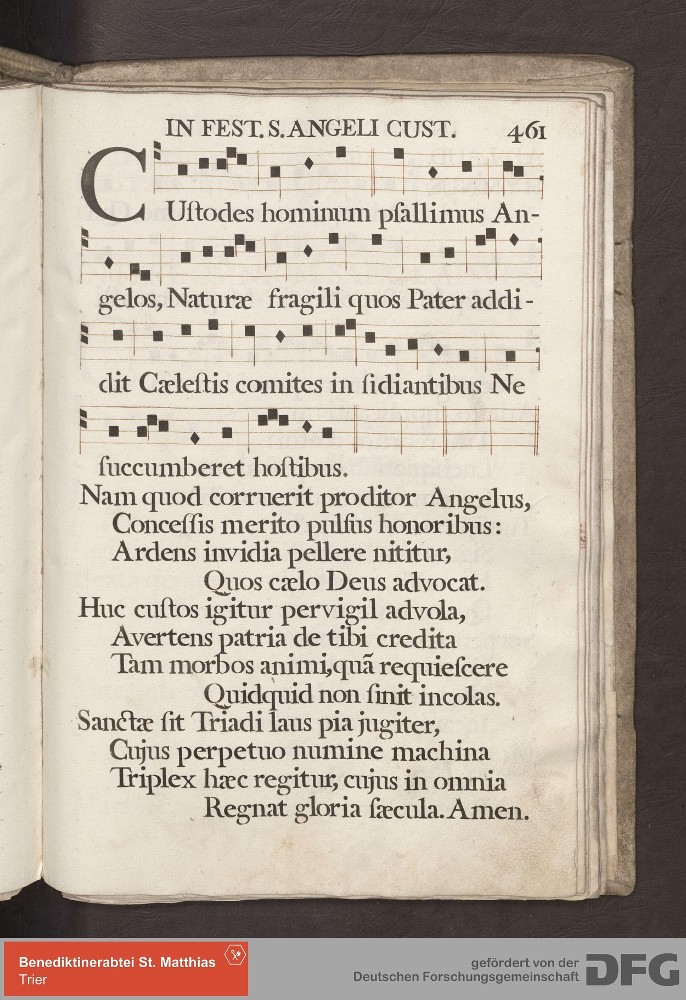 IN FEST. S. ANGELI CUST. 461
CUſtodes hominum pſallimus An-
gelos, Naturæ fragili quos Pater addi-
dit Cæleſtis comites in ſidiantibus Ne
ſuccumberet hoſtibus.
Nam quod corruerit proditor Angelus,
Conceſſis merito pulſus honoribus:
Ardens invidia pellere nititur,
Quos cælo Deus advocat.
Huc cuſtos igitur pervigil advola,
Avertens patria de tibi credita
Tam morbos animi, quã requieſcere
Quidquid non ſinit incolas.
Sanctæ ſit Triadi laus pia jugiter,
Cujus perpetuo numine machina
Triplex hæc regitur, cujus in omnia
Regnat gloria ſæcula. Amen.
Benediktinerabtei St. Matthias
Trier
gefördert von der
Deutschen Forschungsgemeinschaft DFG